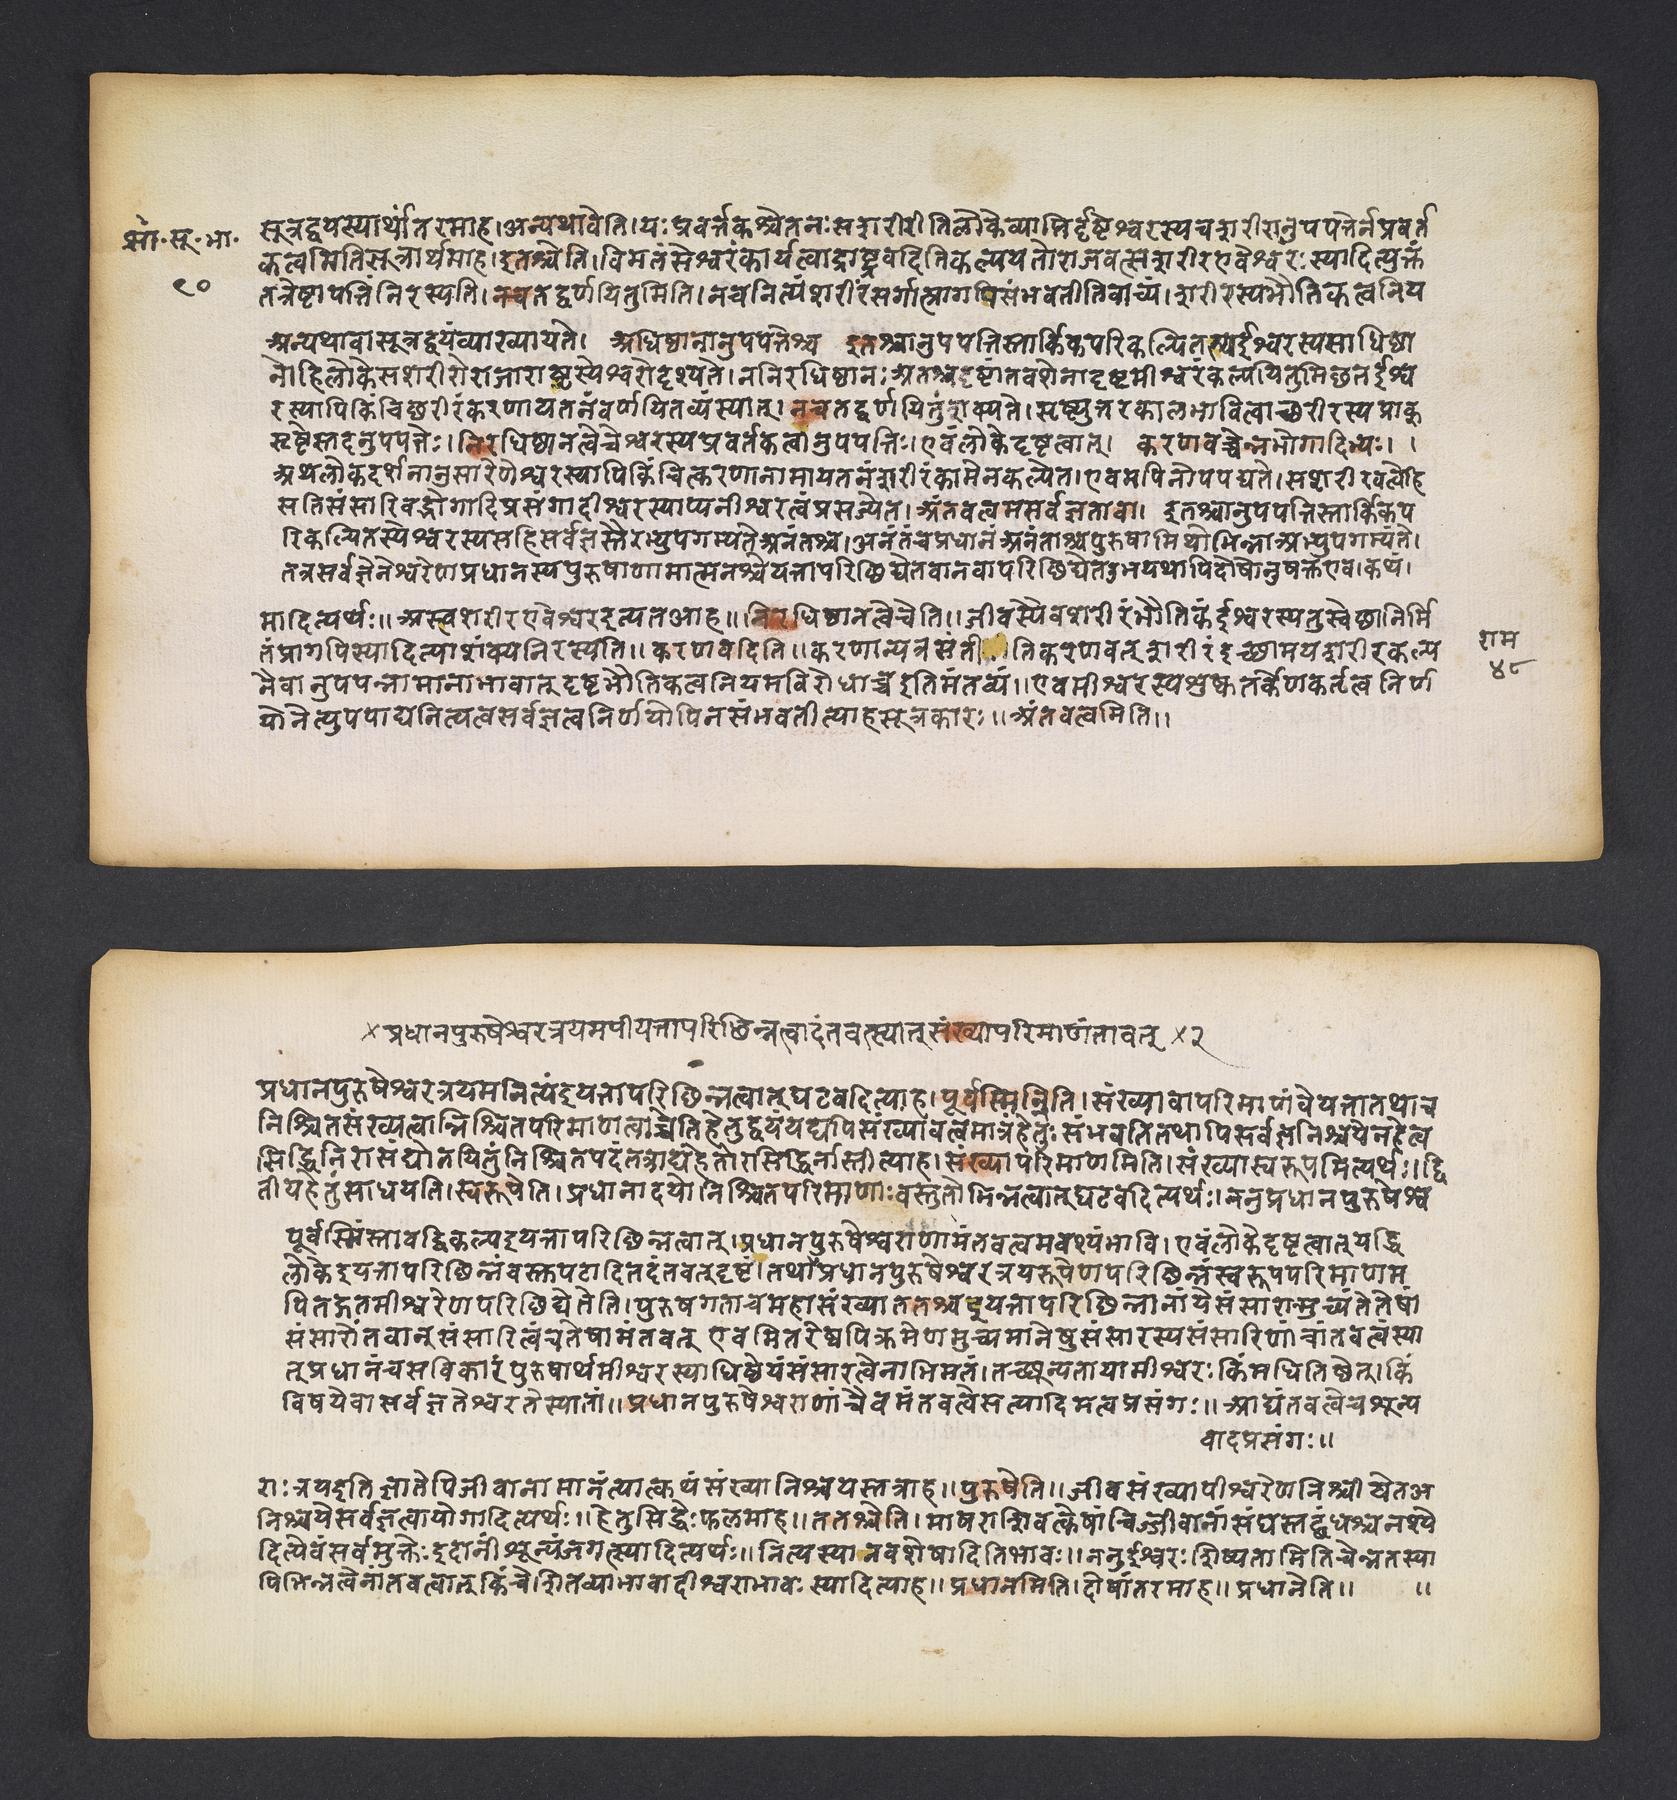 सूत्रद्वयस्यार्थांतरमाह।अन्यथावेति।यःप्रवर्त्तकश्चेतनःसशरीरीतिलोकेव्याप्तिर्दृष्टेश्वरस्यचशरीरानुपपत्तेर्नप्रवर्त
शां.सू.भा.
९०
कत्वमितिसूत्रार्थमाह।इतश्चेति।विमतंसेश्वरंकार्यत्वाद्राष्ट्रवदितिकल्पयतोराजवत्सशरीरएवेश्वरःस्यादित्युक्तं
तत्रेष्टापत्तिंनिरस्यति।नचतद्वर्णयितुमिति।नचनित्यंशरीरंसर्गात्प्रागपिसंभवतीतिवाच्यं।शरीरस्यभौतिकत्वनिय
अन्यथावासूत्रद्वयंव्याख्यायते। अधिष्ठानानुपपत्तेश्च इतश्चानुपपत्तिस्तार्किकपरिकल्पितस्यईश्वरस्यसाधिष्ठा
नोहिलोकेसशरीरोराजाराष्ट्रस्येश्वरोदृश्यते।ननिरधिष्ठानः।अतश्चदृष्टांतवशेनादृष्टमीश्वरंकल्पयितुमिछतईश्व
रस्यापिकिंचिछरीरंकरणायतनंवर्णयितव्यंस्यात्।नचतद्वर्णयितुंशक्यते।सृष्ट्युत्तरकालभावित्वाच्छरीरस्यप्राक्
सृष्टेस्तदनुपपत्तेः।निरधिष्ठानत्वेचेश्वरस्यप्रवर्तकत्वानुपपत्तिः।एवंलोकेदृष्टत्वात्। करणवच्चेन्नभोगादिभ्यः।।
अथलोकदर्शनानुसारेणेश्वरस्यापिकिंचित्करणानामायतनंशरीरंकामेनकल्पेत।एवमपिनोपपद्यते।सशरीरत्वेहि
सतिसंसारिवद्भोगादिप्रसंगादीश्वरस्याप्यनीश्वरत्वंप्रसज्येत।अंतवत्वमसर्वज्ञतावा। इतश्चानुपपत्तिस्तार्किकप
रिकल्पितस्येश्वरस्यसहिसर्वज्ञस्तैरभ्युपगम्यतेअनंतश्च।अनंतंचप्रधानंअनंताश्चपुरुषामिथोभिन्नाअभ्युपगम्यंते।
तत्रसर्वज्ञेनेश्वरेणप्रधानस्यपुरुषाणामात्मनश्चेयत्तापरिछिद्येतवानवापरिछिद्येतउभयथापिदोषोनुषक्तएव।कथं।
मादित्यर्थः॥अस्त्वशरीरएवेश्वरइत्यतआह॥निरधिष्ठानत्वेचेति॥जीवस्यैवशरीरंभौतिकंईश्वरस्यतुस्वेछानिर्मि
तंप्रागपिस्यादित्याशंक्यनिरस्यति॥करणवदिति॥करणान्यत्रसंतीतिकरणवत्शरीरंइच्छामयशरीरकल्प
राम
४८
नैवानुपपन्नामानाभावात्दृष्टभौतिकत्वनियमविरोधाच्चेतिमंतव्यं॥एवमीश्वरस्यशुष्कतर्केणकर्तृत्वनिर्ण
योनेत्युपपाद्यनित्यत्वसर्वज्ञत्वनिर्णयोपिनसंभवतीत्याहसूत्रकारः॥अंतवत्वमिति॥
×प्रधानपुरुषेश्वरत्रयमपीयत्तापरिछिन्नत्वादंतवत्स्यात्संख्यापरिमाणंतावत्×२
प्रधानपुरुषेश्वरत्रयमनित्यंइयत्तापरिछिन्नत्वात्घटवदित्याह।पूर्वस्मिन्निति।संख्यावापरिमाणंवेयत्तातथाच
निश्चितसंख्यत्वान्निश्चितपरिमाणत्वाच्चेतिहेतुद्वयंयद्यपिसंख्यावत्वमात्रंहेतुःसंभवतितथापिसर्वज्ञनिश्चयेनहेत्व
सिद्धिनिरासंद्योतयितुंनिश्चितपदंतत्राद्यहेतोरसिद्धिर्नास्तीत्याह।संख्यापरिमाणमिति।संख्यास्वरूपमित्यर्थः।द्वि
तीयहेतुंसाधयति।स्वरूपेति।प्रधानादयोनिश्चितपरिमाणाःवस्तुतोभिन्नत्वात्घटवदित्यर्थः।ननुप्रधानपुरुषेश्व
पूर्वस्मिंस्तावद्विकल्पइयत्तापरिछिन्नत्वात्।प्रधानपुरुषेश्वराणामंतवत्वमवश्यंभावि।एवंलोकेदृष्टत्वात्यद्धि
लोकेइयत्तापरिछिन्नंवस्तुपटादितदंतवत्दृष्टं।तथाप्रधानपुरुषेश्वरत्रयरूपेणपरिछिन्नंस्वरूपपरिमाणम
पितद्गतमीश्वरेणपरिछिद्येतेति।पुरुषगताचमहासंख्याततश्चइयत्तापरिछिन्नानांयेसंसारान्मुच्यंतेतेषां
संसारोंतवान्संसारित्वंचतेषामंतवत् एवमितरेष्वपिक्रमेणमुच्यमानेषुसंसारस्यसंसारिणांचांतवत्वंस्या
त्प्रधानंचसविकारंपुरुषार्थमीश्वरस्याधिष्ठेयंसंसारत्वेनाभिमतं।तच्छून्यतायामीश्वरःकिंमधितिष्ठेत्।किं
विषयेवासर्वज्ञतेश्वरतेस्यातां॥प्रधानपुरुषेश्वराणांचैवमंतवत्वेसत्यादिमत्वप्रसंगः॥आद्यंतवत्वेचशून्य
वादप्रसंगः॥
राःत्रयइतिज्ञातेपिजीवानामानंत्यात्कथंसंख्यानिश्चयस्तत्राह॥पुरुषेति॥जीवसंख्यापीश्वरेणनिश्चीयेतअ
निश्चयेसर्वज्ञत्वायोगादित्यर्थः॥हेतुसिद्धेःफलमाह॥ततश्चेति।माषराशिवत्केषांचिज्जीवानांसंघस्तद्बंधश्चनश्ये
दित्येवंसर्वमुक्तेःइदानींशून्यंजगत्स्यादित्यर्थः॥नित्यस्यानवशेषादितिभावः॥ननुईश्वरःशिष्यतामितिचेन्नतस्या
पिभिन्नत्वेनांतवत्वात्किंचेशितव्याभावादीश्वराभावःस्यादित्याह॥प्रधानमिति।दोषांतरमाह॥प्रधानेति॥ ॥